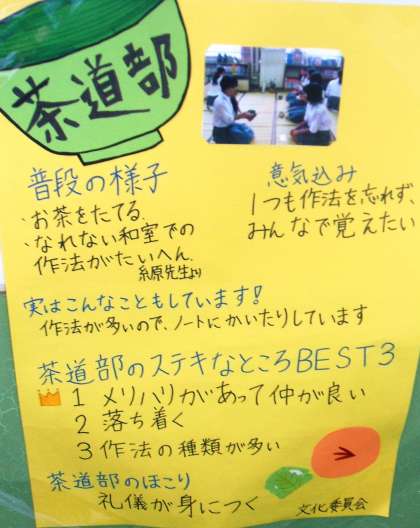 茶道部
普段の様子
・お茶をたてる
・なれない和室での
作法がたいへん
糸原先生より
意気込み
1つも作法を忘れず、
みんなで覚えたい
実はこんなこともしています!
作法が多いので、ノートにかいたりしています
茶道部のステキなところBEST3
1 メリハリがあって仲が良い
2 落ち着く
3 作法の種類が多い
茶道部のほこり
礼儀が身につく
文化委員会